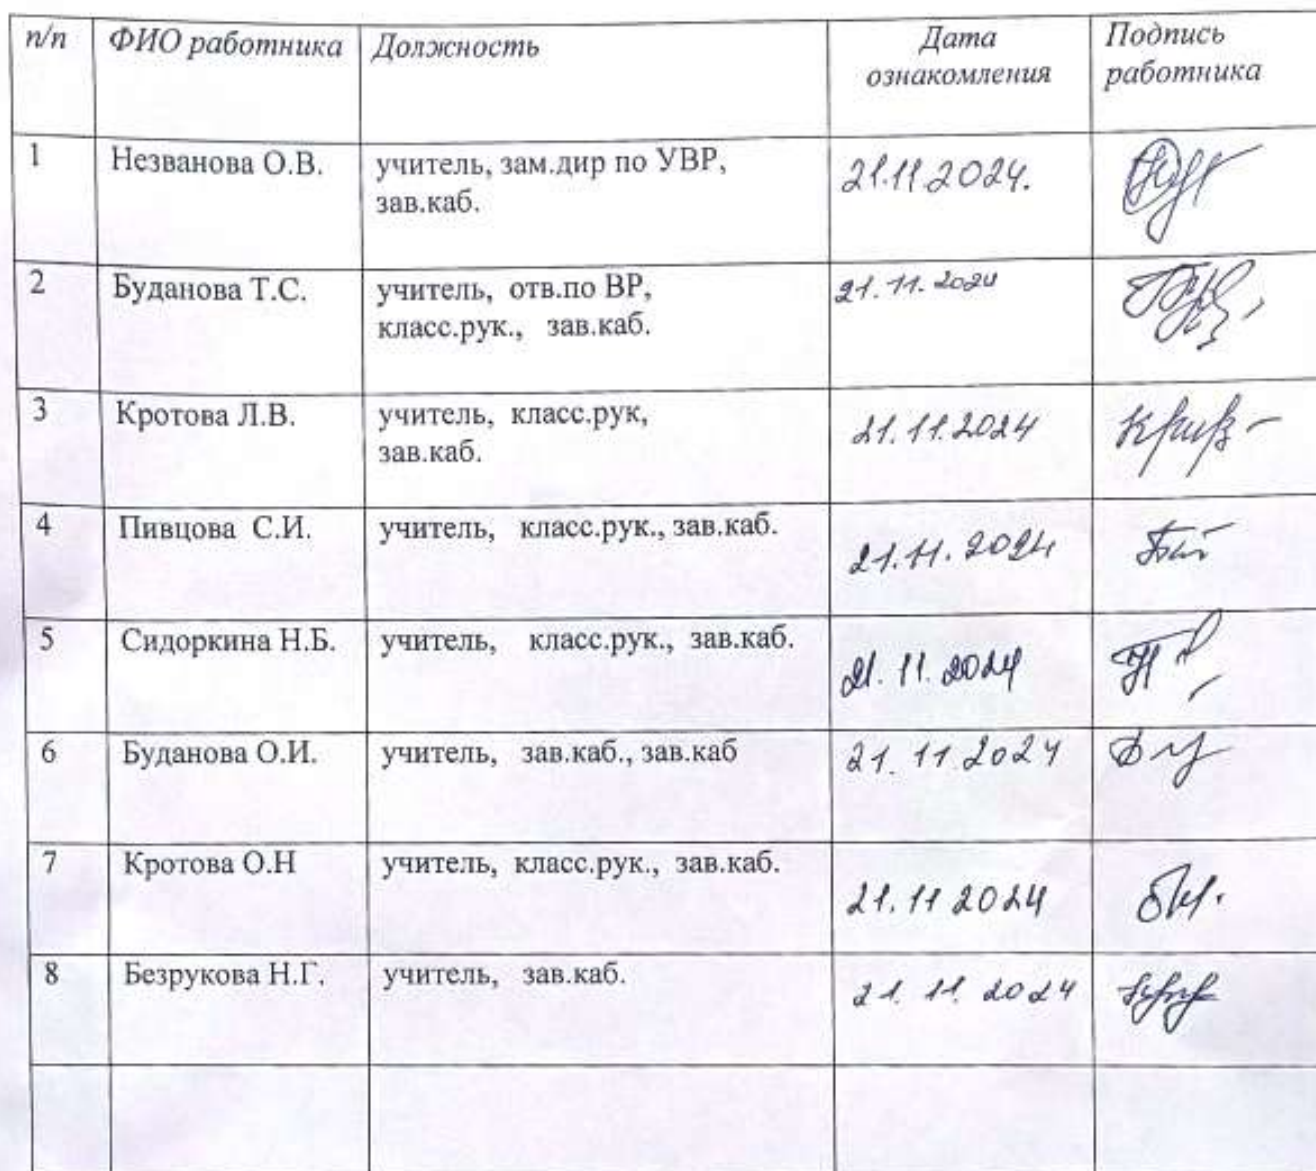 п/п ФИО работника Должность Дата Подпись
ознакомления работника
1 Незванова О.В. учитель, зам.дир по УВР, 21.11.2024.
зав.каб.
2 Буданова Т.С. учитель, отв.по ВР, 21.11.2024
класс.рук., зав.каб.
3 Кротова Л.В. учитель, класс.рук, 21.11.2024
зав.каб.
4 Пивцова С.И. учитель, класс.рук., зав.каб. 21.11.2024
5 Сидоркина Н.Б. учитель, класс.рук., зав.каб. 21.11.2024
6 Буданова О.И. учитель, зав.каб., зав.каб 21.11.2024
7 Кротова О.Н учитель, класс.рук., зав.каб. 21.11 2024
8 Безрукова Н.Г. учитель, зав.каб. 21.11.2024